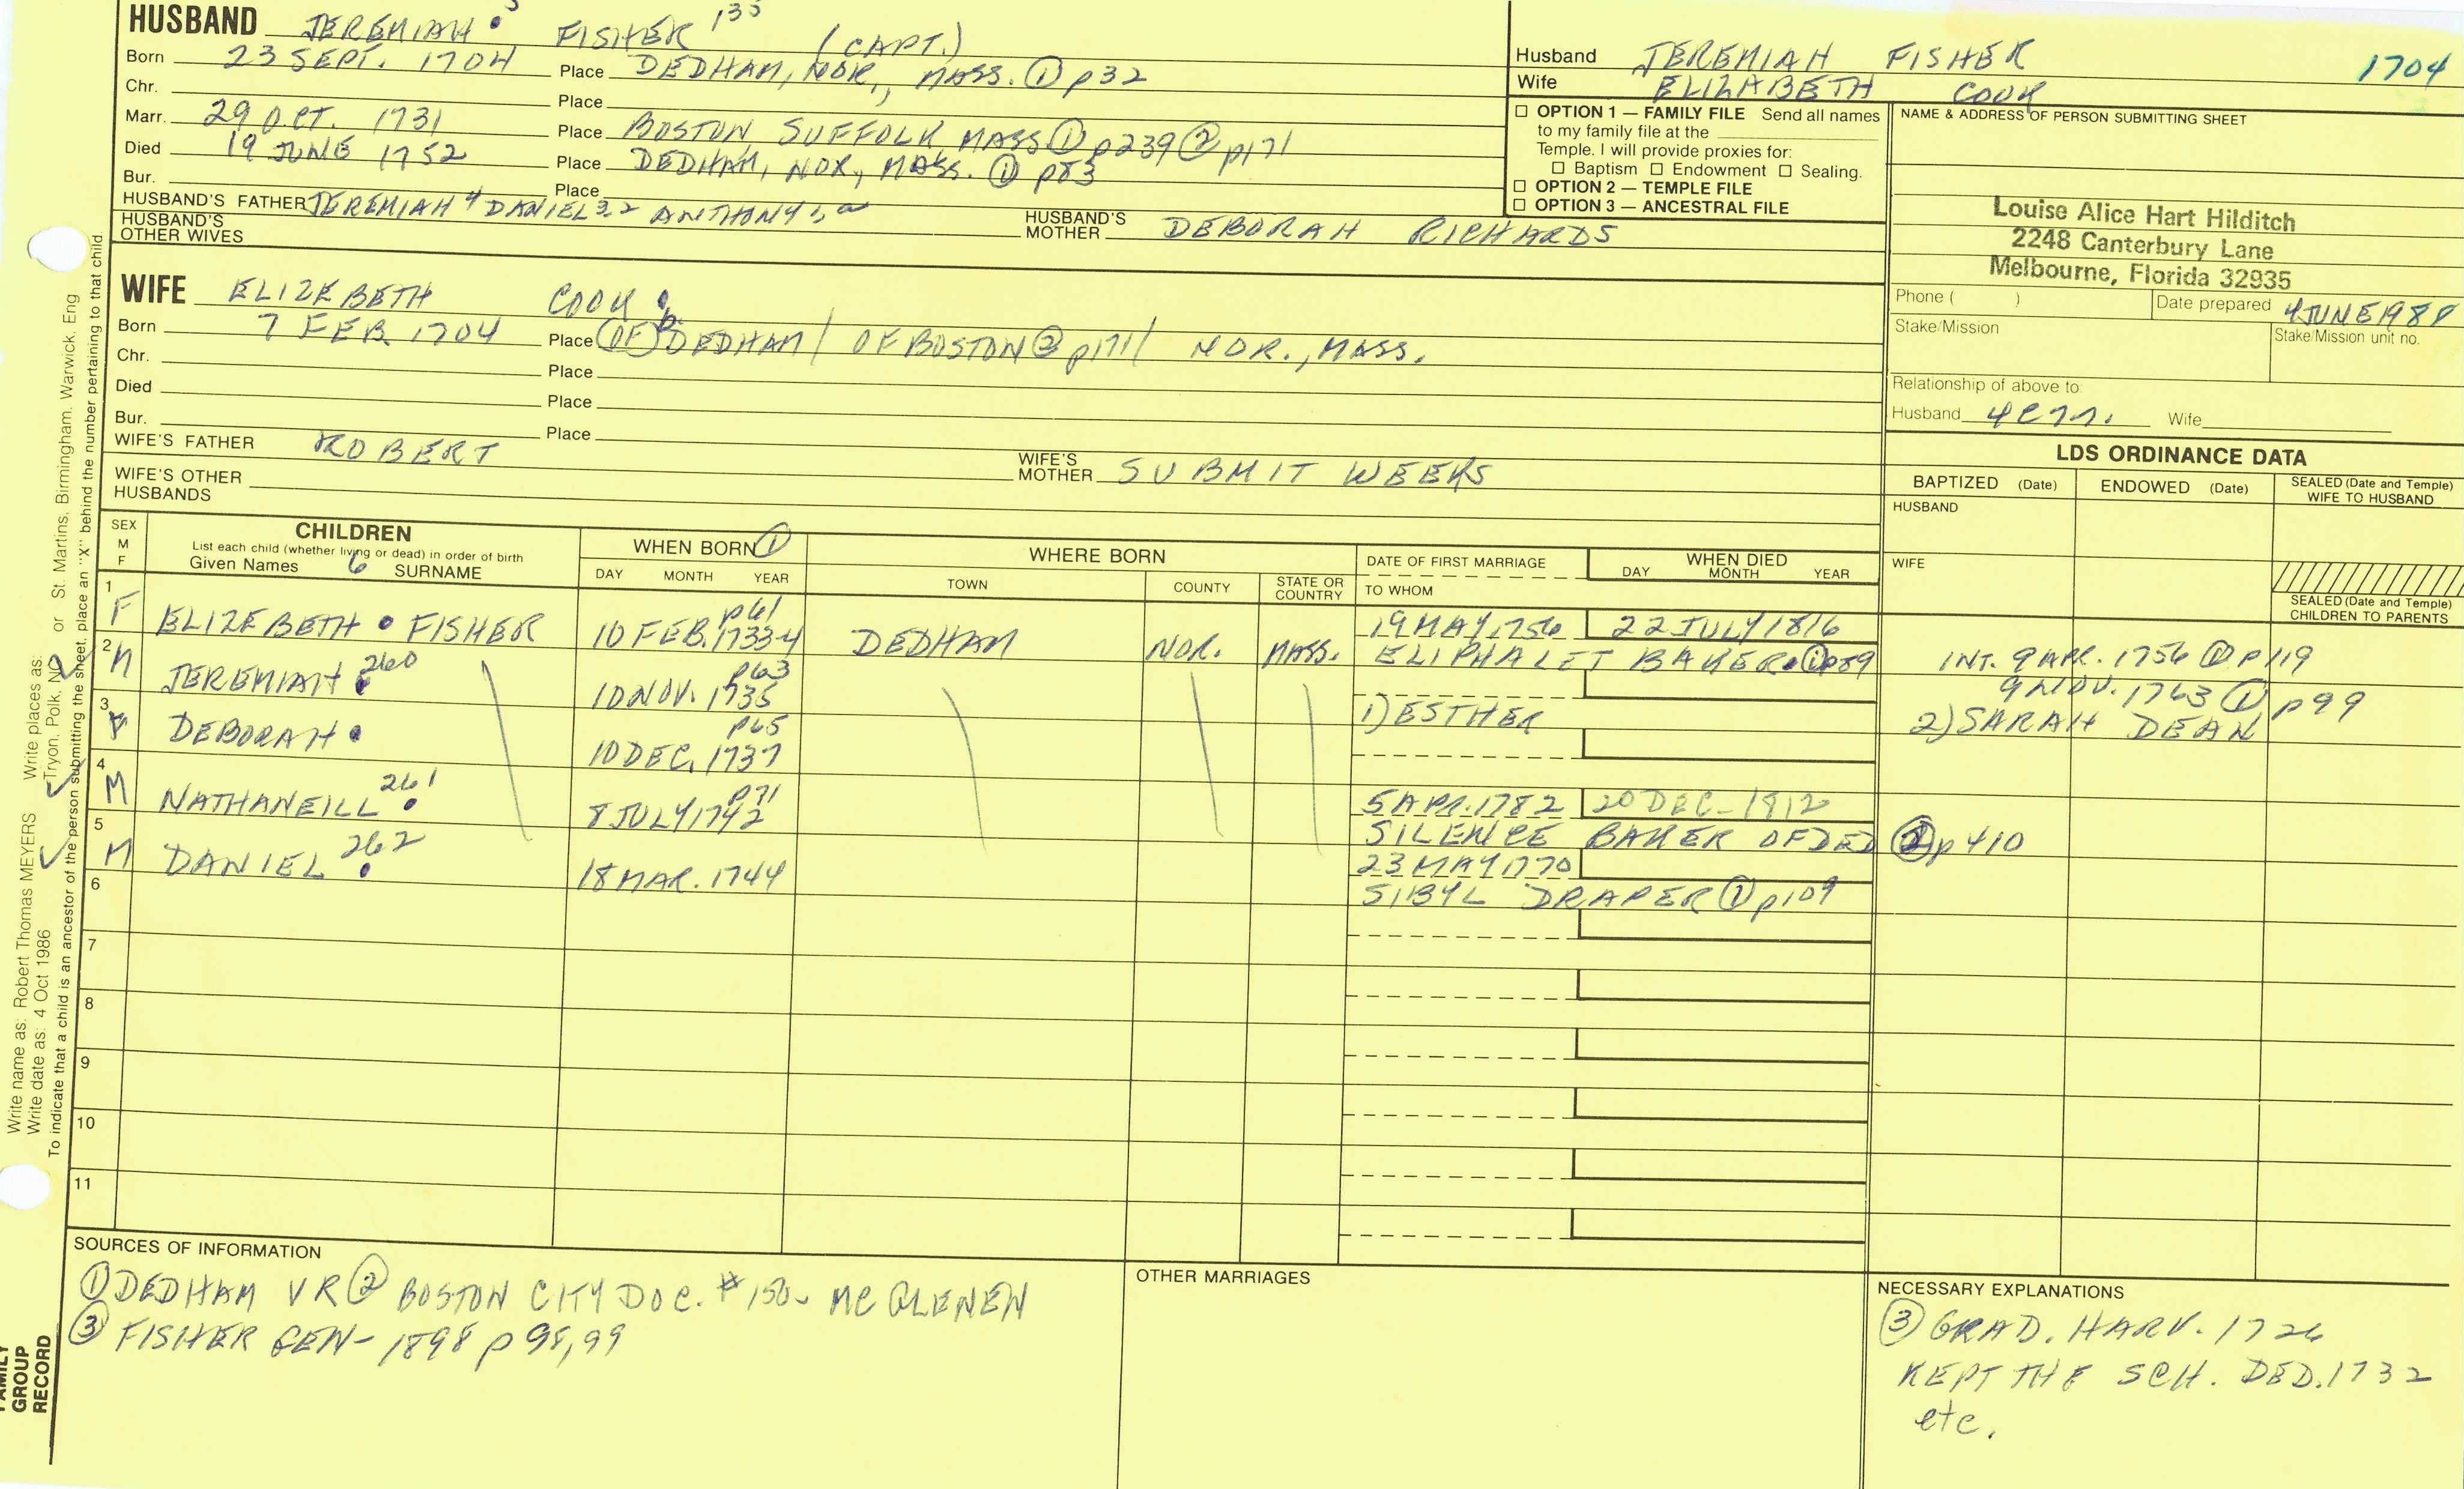 HUSBAND JEREMIAH 5 FISHER 135 (CAPT.)
Born 23 SEPT. 1704 Place DEDHAM, NOR., MASS. ① p32
Chr. Place
Marr. 29 OCT. 1731 Place BOSTON, SUFFOLK, MASS ① p239 ② p171
Died 19 JUNE 1752 Place DEDHAM, NOR., MASS. ① p83
Bur. Place
HUSBAND'S FATHER JEREMIAH 4 DANIEL 3,2 ANTHONY 1, HUSBAND'S MOTHER DEBORAH RICHARDS
HUSBAND'S OTHER WIVES
Husband JEREMIAH FISHER 1704
Wife ELIZABETH COOK
☐ OPTION 1 — FAMILY FILE Send all names
to my family file at the
Temple. I will provide proxies for:
☐ Baptism ☐ Endowment ☐ Sealing.
☐ OPTION 2 — TEMPLE FILE
☐ OPTION 3 — ANCESTRAL FILE
NAME & ADDRESS OF PERSON SUBMITTING SHEET
Louise Alice Hart Hilditch
2248 Canterbury Lane
Melbourne, Florida 32935
Phone ( ) Date prepared 4 JUNE 1988
Stake/Mission Stake/Mission unit no.
Relationship of above to:
Husband 4C7r. Wife
WIFE ELIZEBETH COOK
Born 7 FEB. 1704 Place OF DEDHAM / OF BOSTON ② p171 / NOR., MASS.
Chr. Place
Died Place
Bur. Place
WIFE'S FATHER ROBERT WIFE'S MOTHER SUBMIT WEEKS
WIFE'S OTHER HUSBANDS
LDS ORDINANCE DATA
BAPTIZED (Date) ENDOWED (Date) SEALED (Date and Temple) WIFE TO HUSBAND
HUSBAND
WIFE
SEALED (Date and Temple) CHILDREN TO PARENTS
SEX M F
CHILDREN
List each child (whether living or dead) in order of birth
Given Names 6 SURNAME
WHEN BORN ①
DAY MONTH YEAR
WHERE BORN
TOWN COUNTY STATE OR COUNTRY
DATE OF FIRST MARRIAGE
TO WHOM
WHEN DIED
DAY MONTH YEAR
1 F ELIZEBETH FISHER p61 10 FEB. 1733-4 DEDHAM NOR. MASS. 19 MAY 1756 22 JULY 1816
ELIPHALET BAKER ① p89 INT. 9 APR. 1756 ① p119
2 M JEREMIAH 260 p63 10 NOV. 1735 9 NOV. 1763 ① p99
1) ESTHER 2) SARAH DEAN
3 F DEBORAH p65 10 DEC. 1737
4 M NATHANEILL 261 p71 8 JULY 1742 5 APR. 1782 20 DEC - 1812
SILENCE BAKER OF DED ② p410
5 M DANIEL 262 18 MAR. 1744 23 MAY 1770
SIBYL DRAPER ① p109
6
7
8
9
10
11
SOURCES OF INFORMATION
① DEDHAM VR ② BOSTON CITY DOC. #150- MC GLENEN
③ FISHER GEN- 1898 p 98,99
OTHER MARRIAGES
NECESSARY EXPLANATIONS
③ GRAD. HARV. 1726
KEPT THE SCH. DED. 1732
etc.
Write name as: Robert Thomas MEYERS Write places as: Tryon, Polk, NC or St. Martins, Birmingham, Warwick, Eng
Write date as: 4 Oct 1986
To indicate that a child is an ancestor of the person submitting the sheet, place an "X" behind the number pertaining to that child
FAMILY
GROUP
RECORD